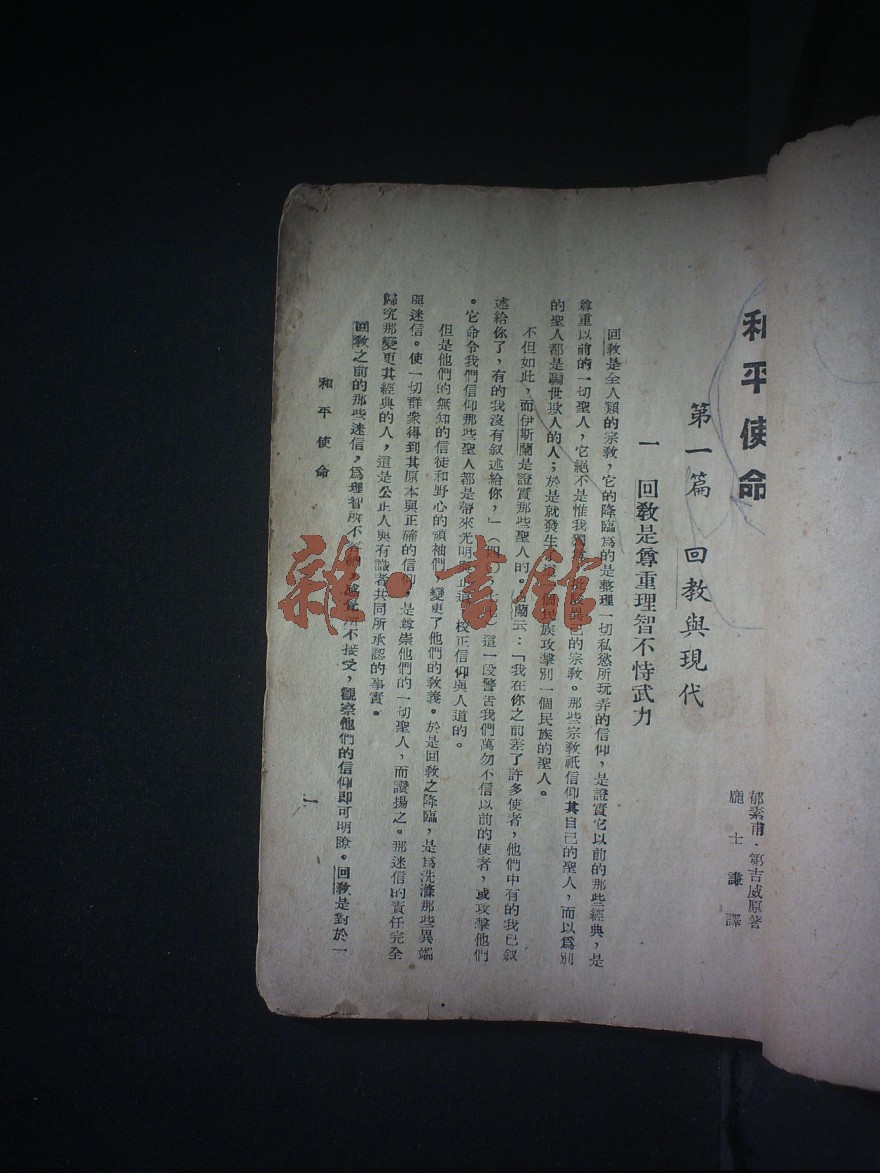 和平使命
郁素甫·第吉威原著
龐士謙譯
第一篇 回教與現代
一 回教是尊重理智不恃武力
回教是全人類的宗教，它的降臨爲的是整理一切私慾所玩弄的信仰，是證實它以前的那些經典，是
尊重以前的一切聖人，它絕不是惟我獨尊，的宗教。那些宗教祇信仰其自己的聖人，而以爲別
的聖人都是騙世欺人的人；於是就發生了個民族攻擊別一個民族的聖人。
不但如此，而伊斯蘭是證實那些聖人的。蘭云：「我在你之前差了許多使者，他們中有的我已叙
述給你了，有的我沒有叙述給你，」（四）這一段警告我們萬勿不信以前的使者，或攻擊他們
。它命令我們信仰那些聖人都是帶來光明正道校正信仰與人道的。
但是他們的無知的信徒和野心的領袖們變更了他們的敎義。於是回敎之降臨，是爲洗滌那些異端
與迷信。使一切群衆得到其原本與正確的信仰，是尊崇他們的一切聖人，而讚揚之。那迷信的責任完全
歸究那變更其經典的人，這是公正人與有識者共同所承認的事實。
回敎之前的那些迷信，爲理智所不容納，感覺所不接受，觀察他們的信仰即可明瞭。回敎是對於一
和平使命
一
雜·書館